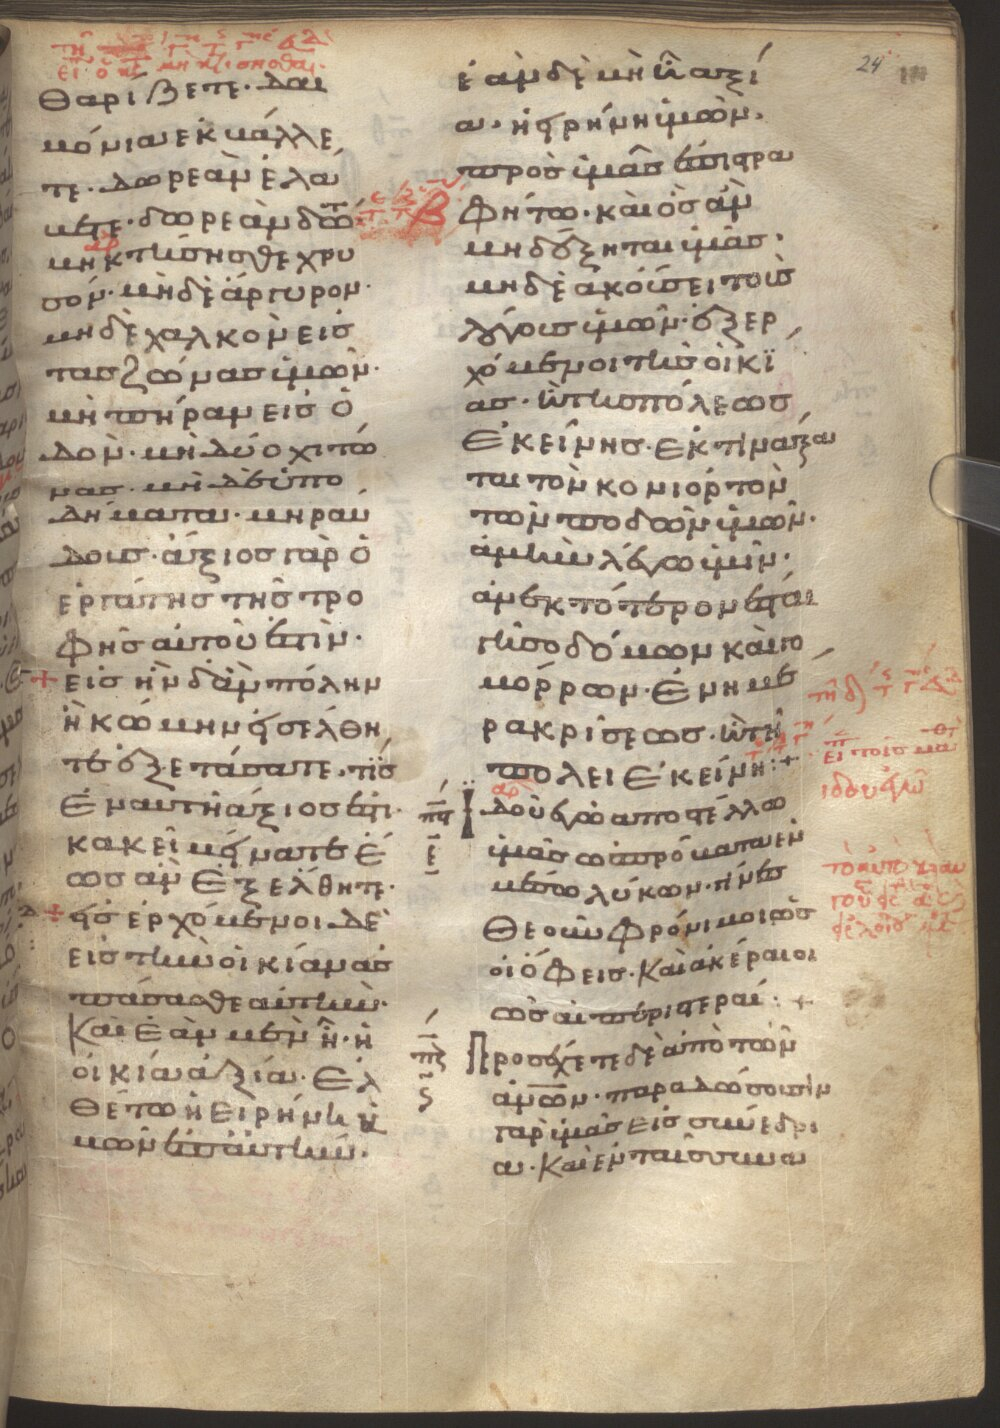 θαρίζετε· δαι
μόνια ἐκβάλλε
τε· δωρεὰν ἐλά
βετε· δωρεὰν δότε·
μὴ κτήσησθε χρυ
σόν· μὴδὲ ἄργυρον·
μηδὲ χαλκὸν εἰς
τὰς ζώνας ὑμῶν·
μὴ πήραν εἰς ὁ
δόν· μὴ δύο χιτῶ
νας· μὴ δὲ ὑπο
δήματα· μὴ ῥαύ
δους· ἄξιος γὰρ ὁ
ἐργάτης τῆς τρο
φῆς αὐτοῦ ἐστίν·
εἰς ἣν δ' ἂν πόλην
ἢ κώμην εἰσέλθη
τε ἐξετάσατε· τίς
ἐν αυτῆ ἄξιος ἐστι·
κακεῖ μείνατε ἕ
ως ἂν ἐξέλθητε·
εἰσερχόμενοι δὲ
εἰς τὴν οἰκίαν ἀσ
πάσασθε αὐτὴν·
Καὶ ἐὰν μὲν ἦ· ἡ
οἰκία ἀξία· ἐλ
θέτω ἡ εἰρήνη ὑ
μῶν ἐπ' αὐτήν·
ἐὰν δὲ μὴ ἦ ἀξί
α· ἡ εἰρήνη ὑμῶν·
πρὸς ὑμᾶς ἐπιστρα
φήτω· καὶ ὃς ἂν
μὴ δέξηται ὑμᾶς·
μηδὲ ἀκούσει τοὺς
λόγους ὑμῶν· ἐξερ
χόμενοι τῆς οἰκϊ
ας· ἢ τῆς πόλεως
ἐκείνης· ἐκτινάξα
ται τὸν κονιορτὸν
τῶν ποδῶν ὑμῶν·
ἀμὴν λέγω ὑμῖν·
ἀνεκτότερον ἔσται
γῆ σοδόμων καὶ γο
μόρρων· ἐν ἡμέ
ρα κρίσεως· ἢ τῆ
πόλει ἐκείνη:+
Ἰδοὺ ἐγὼ αποστέλλω
ὑμᾶς ὡς πρόβατα ἐν
μέσω λύκων· γίνεσ
θε οὖν φρόνιμοι ὡς
οἱ ὄφεις· Καὶ ἀκέραιοι
ὡς αἱ περιστεραί:+
Προσέχετε δὲ ἀπὸ τῶν
ἀνων· παραδώσουσιν
γὰρ ὑμᾶς εἰς συνέδρι
α· Καὶ ἐν ταῖς συνα
24